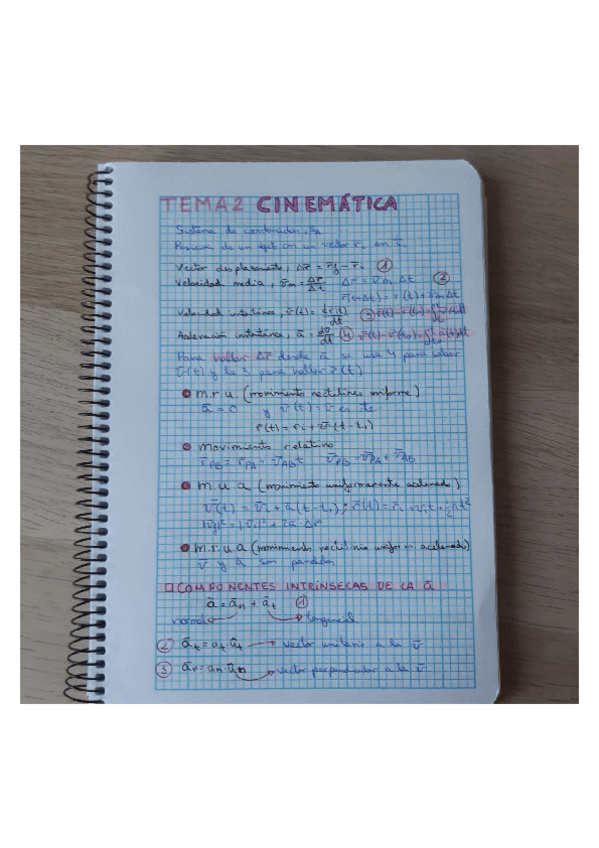 TEMA 2 CINEMÁTICA
Sistema de coordenadas,
Posición de un con un vector r, en
Vector desplazamiento, Δr̄ = r̄f - r̄i ①
Velocidad media, v̄m = Δr̄/Δt Δr̄ = v̄m Δt ②
r(t+Δt) = r(t) + v̄m Δt
Velocidad instantánea, v̄(t) = dr(t)/dt ③
Aceleración instantánea, ā = dv̄/dt ④
Para hallar Δr̄ desde ā se usa 4 para hallar
v̄(t) y la 3 para hallar r̄(t)
m.r.u. (movimiento rectilíneo uniforme)
ā = 0 y v̄(t) = v̄
r̄(t) = r̄i + v̄ (t - ti)
movimiento relativo
r̄PB = r̄PA - v̄AB t v̄PB = v̄PA + v̄AB
m.u.a (movimiento uniformemente acelerado)
v̄(t) = v̄i + ā(t - ti); r̄(t) = r̄i + v̄i t + ½āt²
|v̄|² = |v̄i|² + 2ā · Δr̄
m.r.u.a (movimiento rectilíneo uniform. acelerado)
v̄ y ā son paralelas
COMPONENTES INTRÍNSECAS DE LA ā
ā = ān + āt ①
normal tangencial
② āt = at ût → vector unitario a la v̄
③ ān = an ûn → vector perpendicular a la v̄